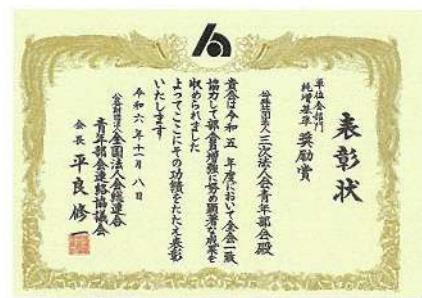 表彰状
単位会部門
純増基準 奨励賞
公益社団法人三次法人会青年部会殿
貴会は令和五年度において全会一致
協力して部会員増強に努め顕著な成果を
収められました
よってここにその功績をたたえ表彰
いたします
令和六年十一月八日
公益財団法人全国法人会総連合
青年部会連絡協議会
会長 平良修一